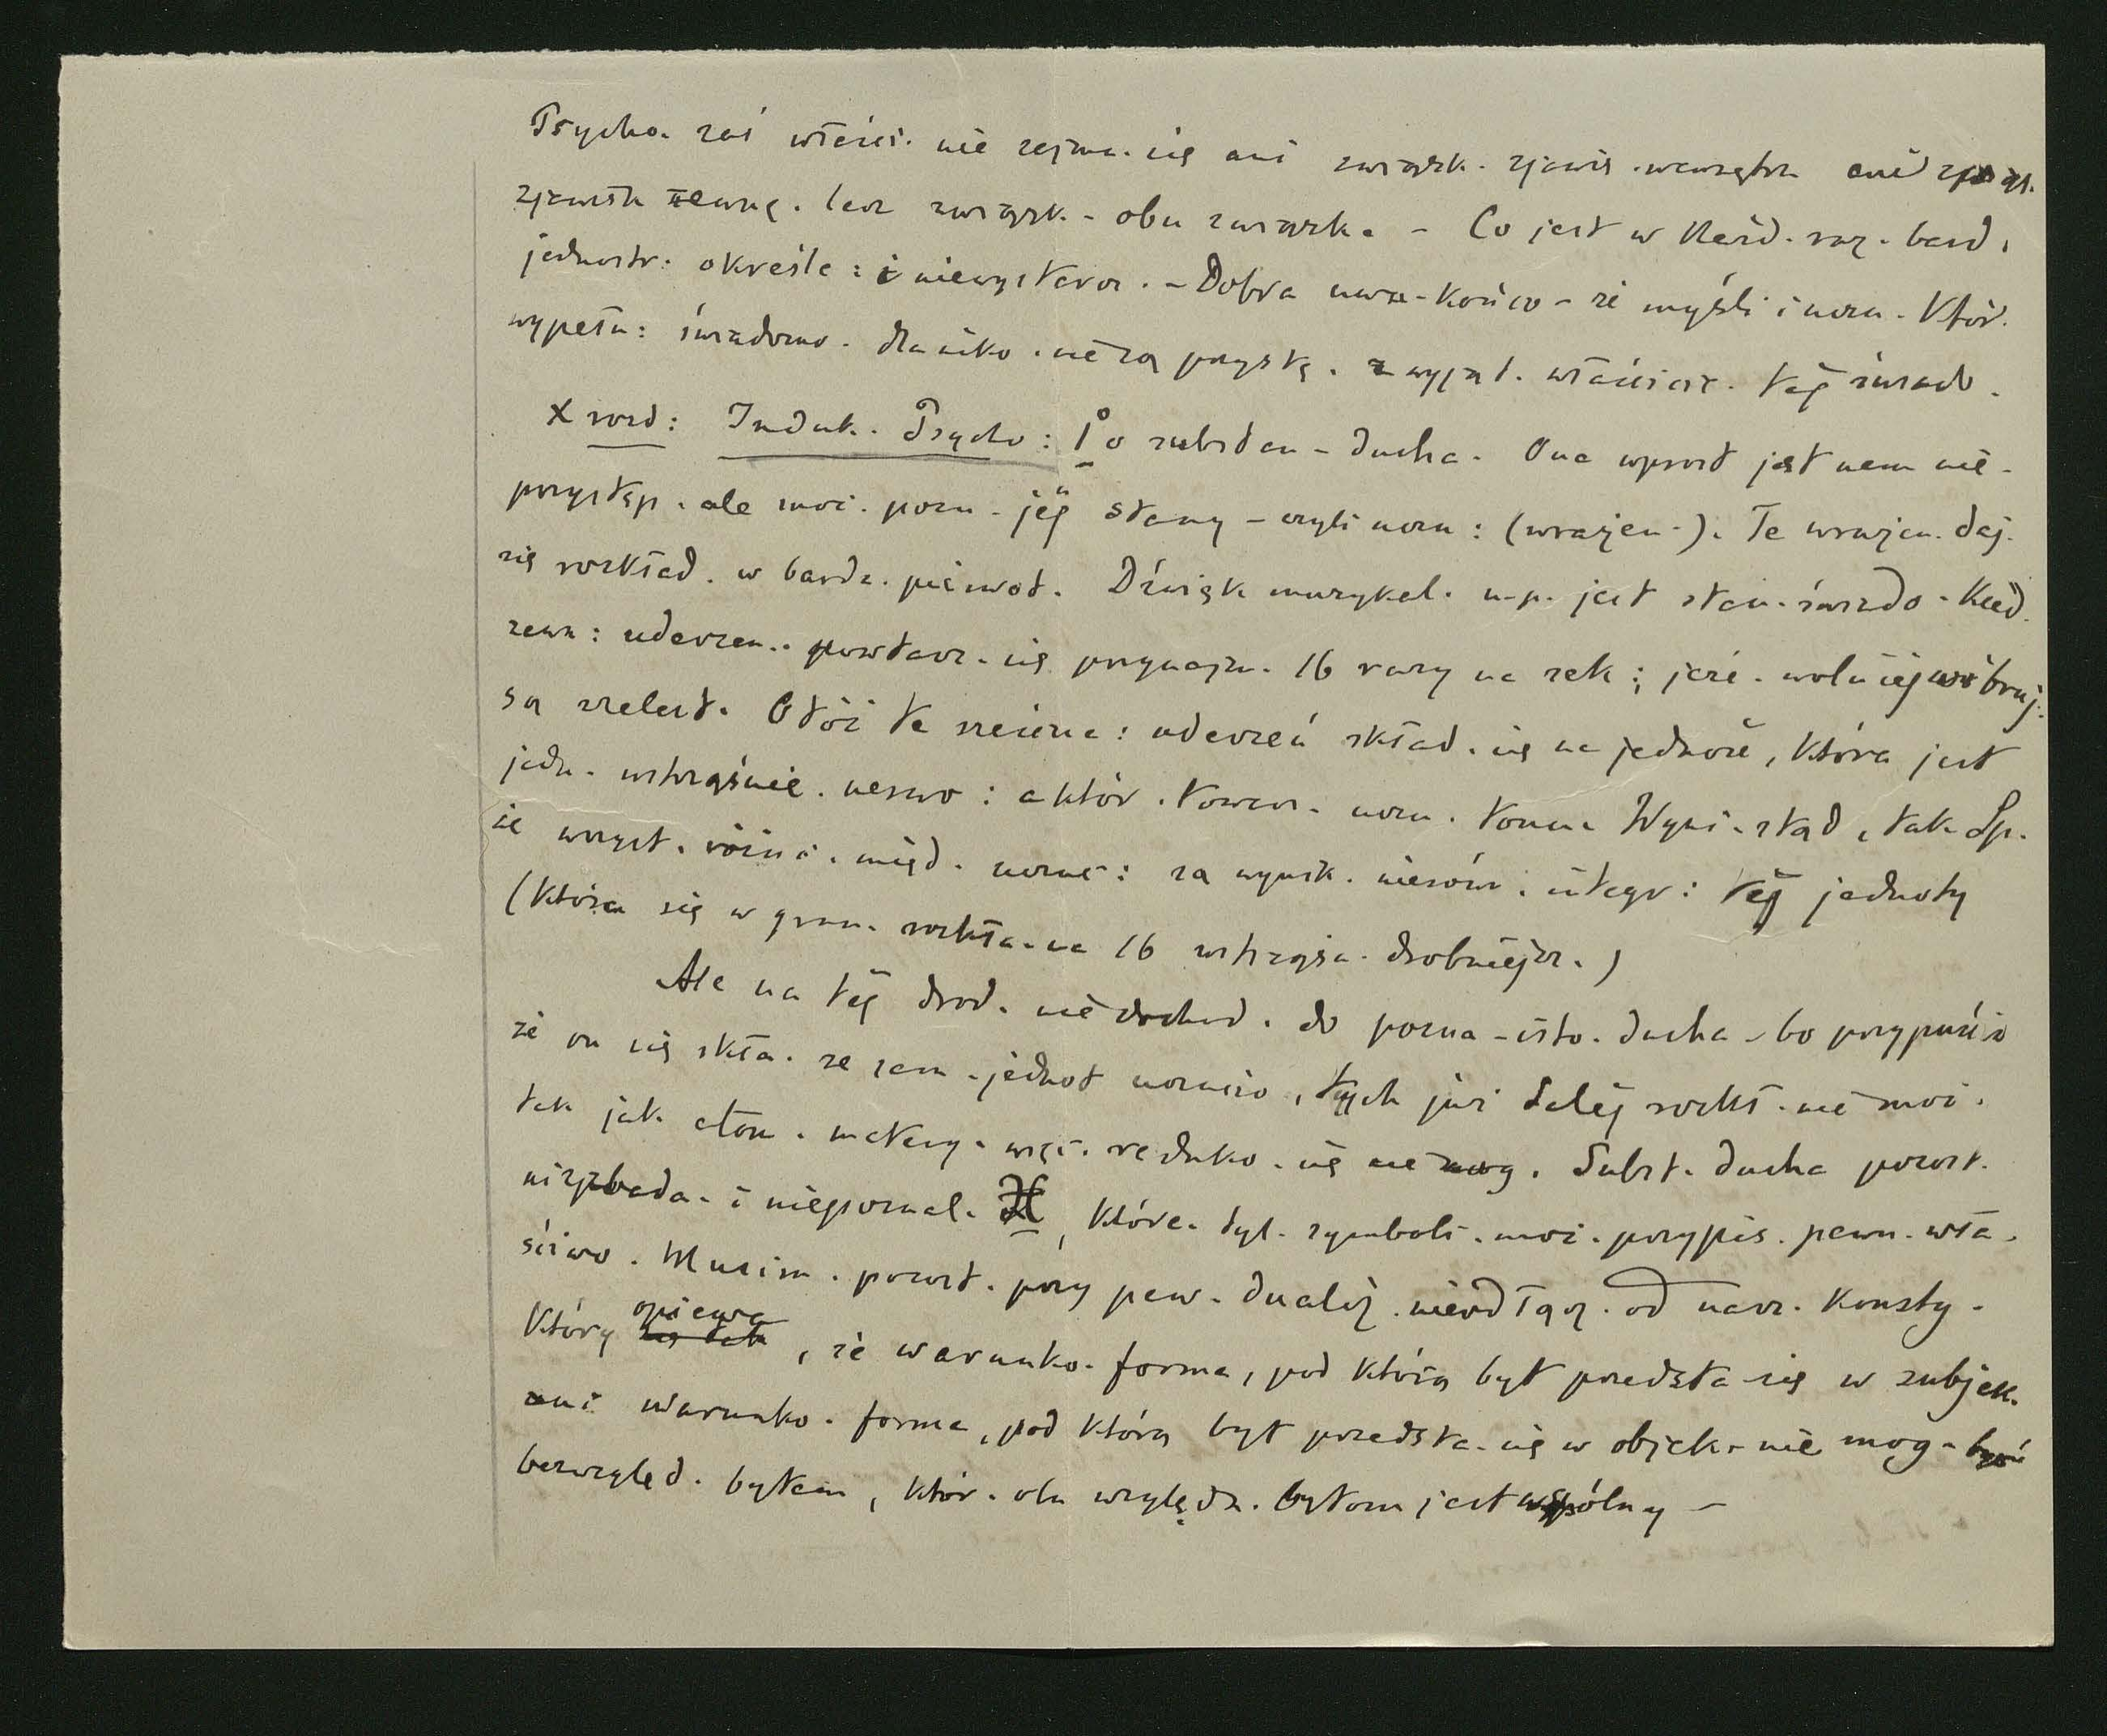 Psycho. zaś właści. nie zajmu. się ani związk. zjawis. wewnętrz. ani związ.
zjawisk zewnę. lecz związk. obu związk. – Co jest w każd. raz. bard.
jednostr: określe: i niewystarcz. – Dobra uwa. końco – że myśli i uczu. któr.
wypełn: świadomo. dla niko. nie są przystę. z wyjąt. właściciel. tej świado.
X rozd: Induk. Psycho: 1º o substan – ducha. Ona wprost jest nam nie-
przystęp. ale moż. pozn. jej stany – czyli uczu: (wrażen.). Te wrażen. daj.
się rozkład. w bardz. pierwot. Dźwięk muzykal. n.p. jest stan. świado. kied.
zewn: uderzen. powtarz. się przynajm. 16 razy na sek; jeże. wolniej wibruj.
są szelest. Otóż te nieczne: uderzeń skład. się na jedność, która jest
jedn. wstrząśnie. nerwo: a któr. towarz. uczu. tonu. Wyni. stąd, tak Sp.
że wszyst. różni. międ. uczuc: są wynik. nierów. integr: tej jednoty
(która się w grun. rozkła. na 16 wstrząśn. drobniejsz.)
Ale na tej drod. nie dochod. do pozna – isto. ducha – bo przypuść.
że on się skła. ze sam. jednot uczucio, tych już dalej rozkł. nie moż.
tak jak atom. matery. więc. reduko. się nie mog. Subst. ducha pozost.
niezbada. i niepoznal. X, które. tyl. symboli. moż. przypis. pewn. wła.
ściwo. Musim. pozost. przy pew. dualiz. nieodłącz. od nasz. konsty.
który opiewa, że warunko. forma, pod którą byt przedsta. się w subjek.
ani warunko. forma, pod którą byt przedsta. się w objek. nie mog. być
bezwzględ. bytem, któr. obu względn. bytom jest wspólny –